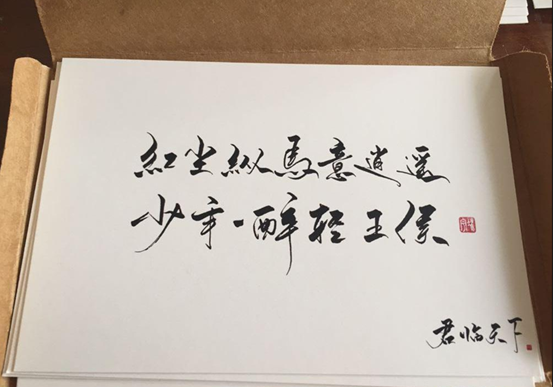 红尘纵馬意逍遥
少年一醉轻王侯
君临天下